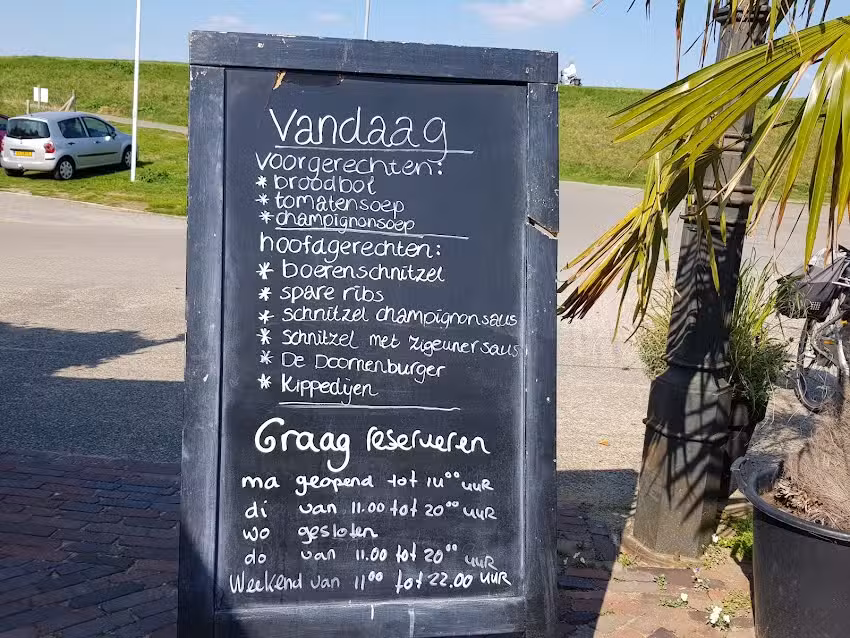 Vandaag
voorgerechten:
* broodbol
* tomatensoep
* champignonsoep
hoofdgerechten:
* boerenschnitzel
* spare ribs
* schnitzel champignonsaus
* schnitzel met zigeunersaus
* De Doornenburger
* Kippedijen
Graag reserveren
ma geopend tot 14⁰⁰ uur
di van 11.00 tot 20⁰⁰ uur
wo gesloten
do van 11.00 tot 20⁰⁰ uur
Weekend van 11⁰⁰ tot 22.00 uur